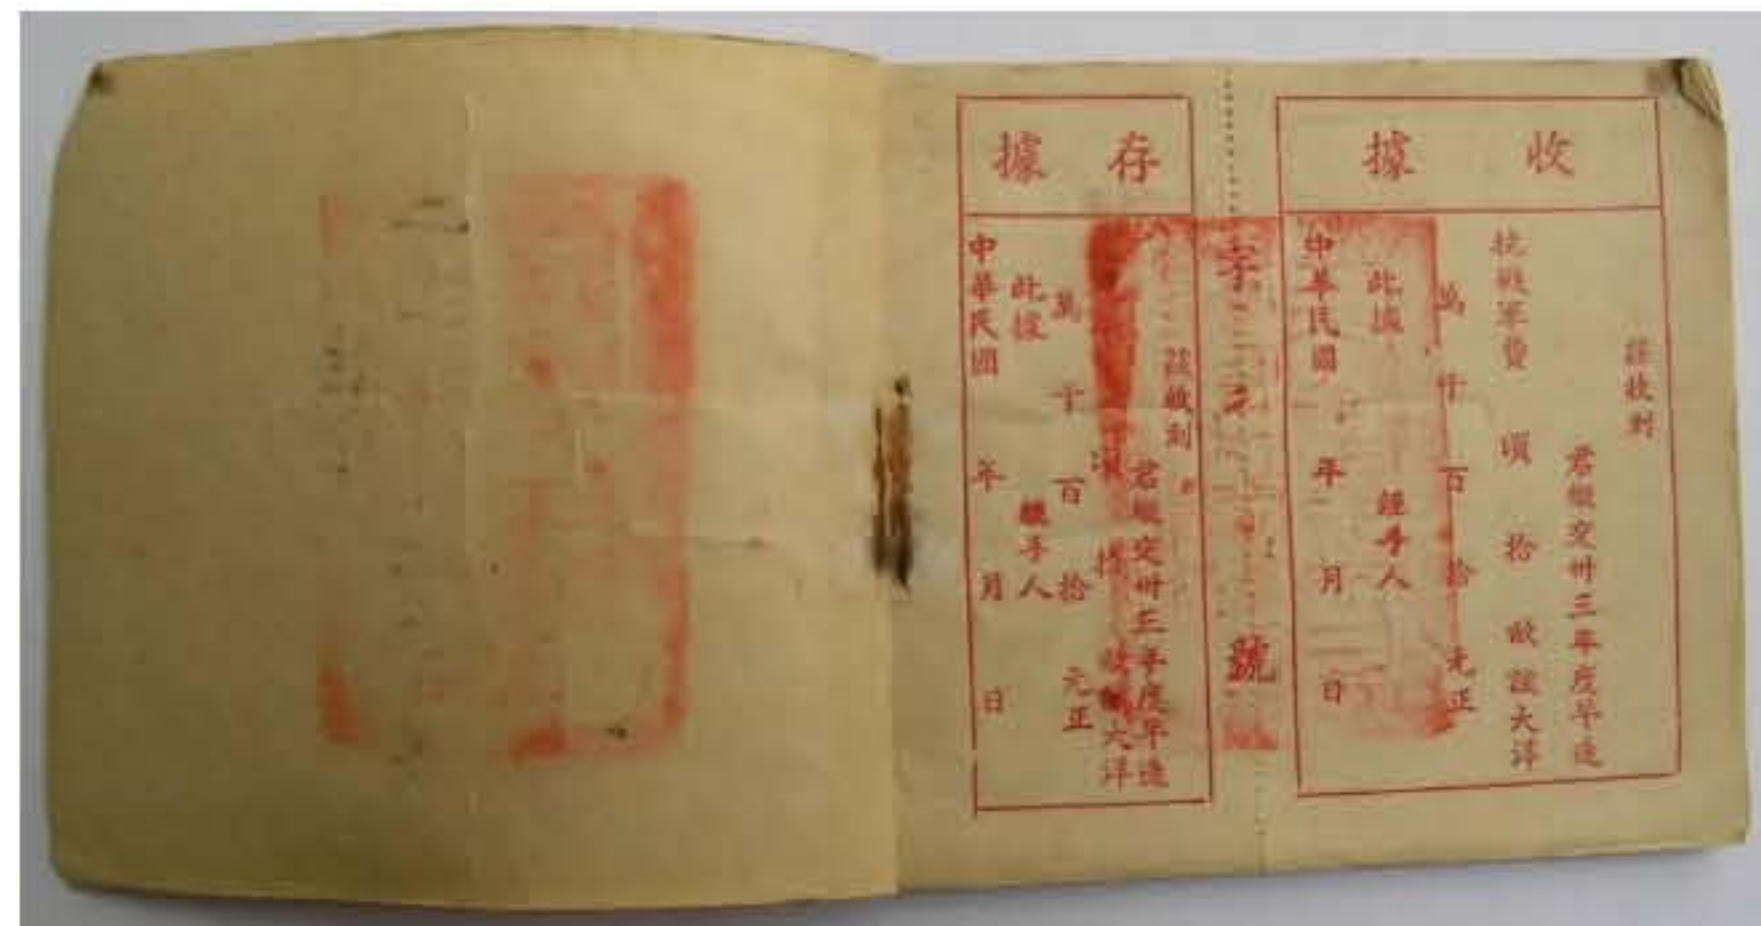 收據
茲收到
君繳交卅三年度早造
抗戰軍費 項 拾 畝該大洋
萬仟百拾元正
此據 經手人
中華民國 年 月 日
字 號
存據
茲收到
君繳交卅三年度早造
大洋
萬千百拾元正
此據 經手人
中華民國 年 月 日